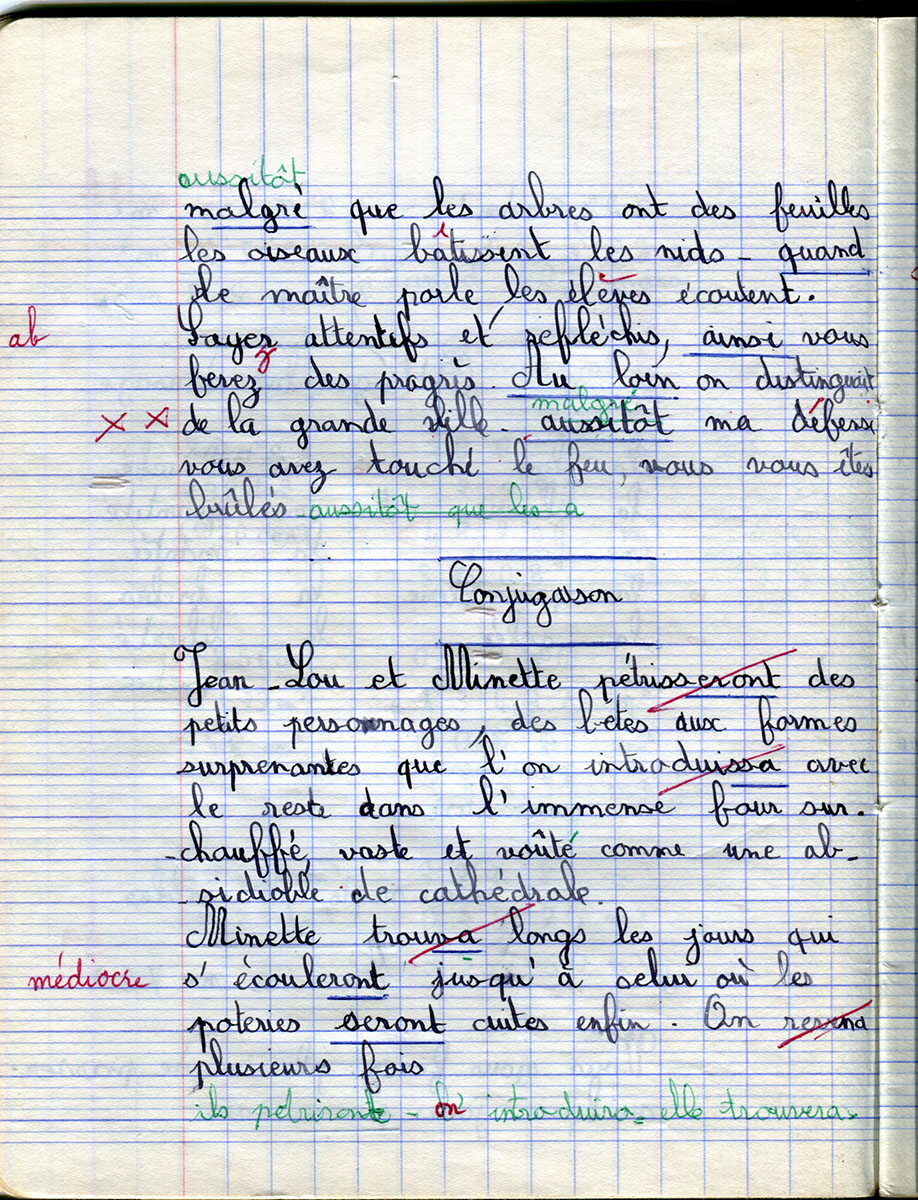 aussitôt
malgré que les arbres ont des feuilles
les oiseaux bâtissent les nids - quand
le maître parle les élèves écoutent.
ab
Soyez attentifs et réfléchis, ainsi vous
ferez des progrès. Au loin on distinguait
malgré
X X de la grande ville - aussitôt ma défense
vous avez touché le feu, vous vous êtes
brûlés - aussitôt que les a
Conjugaison
Jean-Lou et Minette pétrisseront des
petits personnages, des bêtes aux formes
surprenantes que l'on introduissa avec
le reste dans l'immense four sur-
-chauffé, vaste et voûté comme une ab-
-sidiable de cathédrale.
Minette trouva longs les jours qui
médiocre s'écouleront jusqu'à celui où les
poteries seront cuites enfin. On revena
plusieurs fois
ils pétriront - on introduira - elle trouvera.